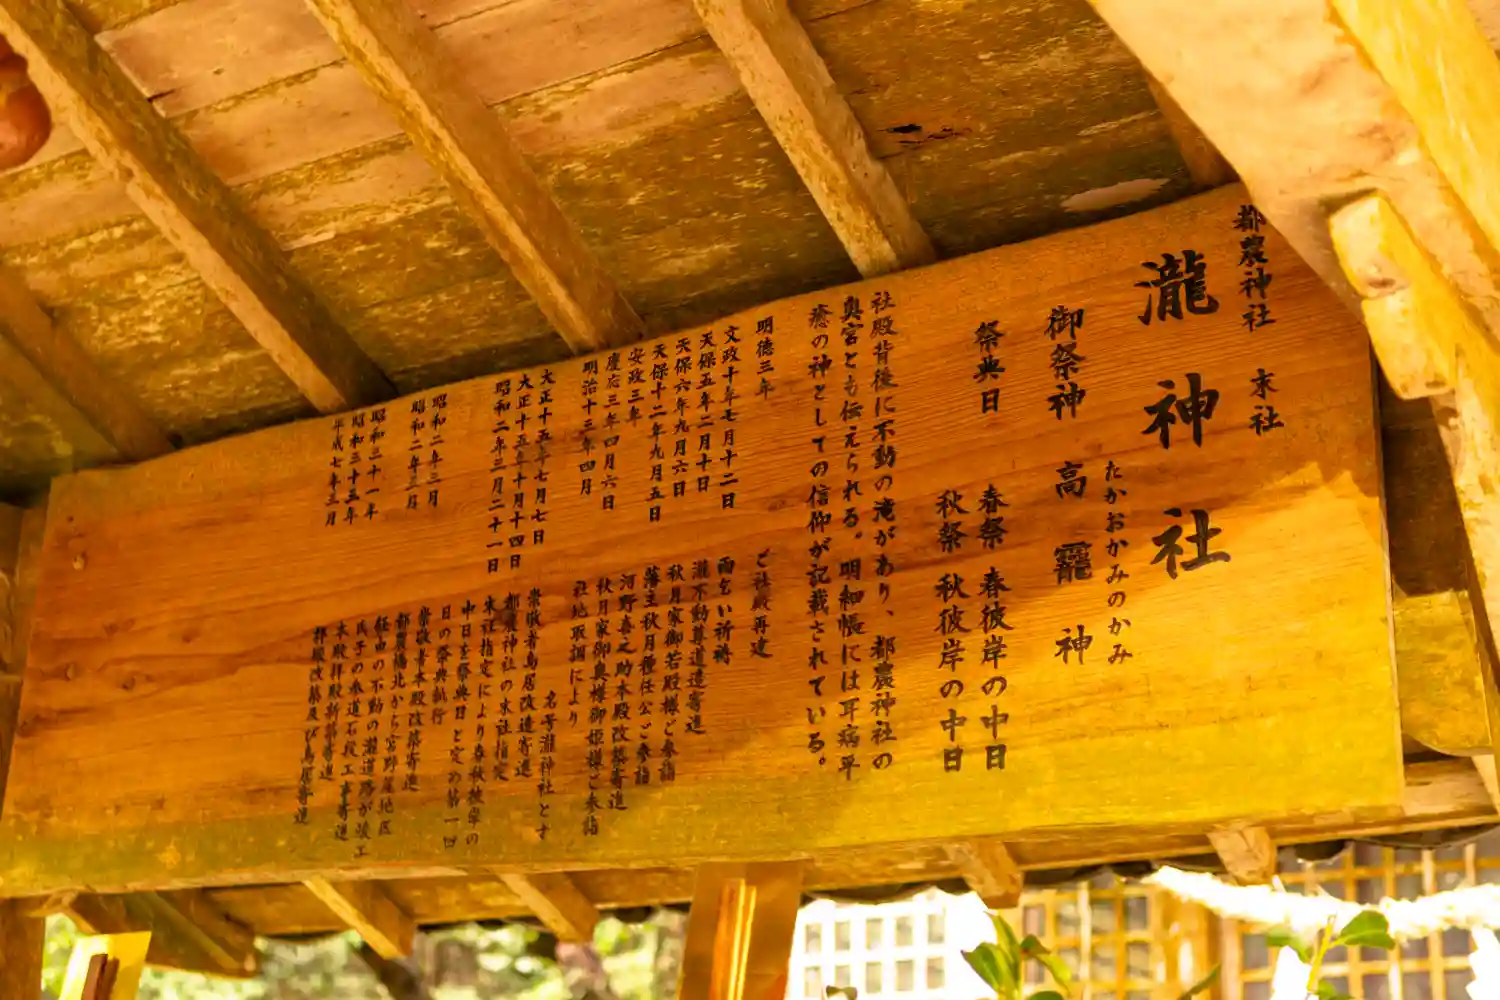 都農神社 末社
瀧神社
たかおかみのかみ
御祭神 高龗神
祭典日 春祭 春彼岸の中日
秋祭 秋彼岸の中日
社殿背後に不動の滝があり、都農神社の
奥宮とも伝えられる。明細帳には耳病平
癒の神としての信仰が記載されている。
明徳三年 ご社殿再建
文政十年七月十二日 雨乞い祈祷
天保五年二月十日 瀧不動尊道造寄進
天保六年九月六日 秋月家御若殿様ご参詣
天保十二年九月五日 藩主秋月種任公ご参詣
安政三年 河野喜之助本殿改築寄進
慶応三年四月六日 秋月家御奥様御姫様ご参詣
明治十三年四月 社地取調により
名号瀧神社とす
大正十五年七月七日 崇敬者鳥居改造寄進
大正十五年十月十四日 都農神社の末社指定
昭和二年三月二十一日 末社指定により春秋彼岸の
中日を祭典日と定め第一回
日の祭典執行
昭和二年三月 崇敬者本殿改築寄進
昭和二年三月 都農橋北から宮野尾地区
経由の不動の瀧道路が竣工
昭和三十一年 氏子の参道石段工事寄進
昭和三十五年 本殿拝殿新築寄進
平成七年三月 拝殿改築及び鳥居寄進